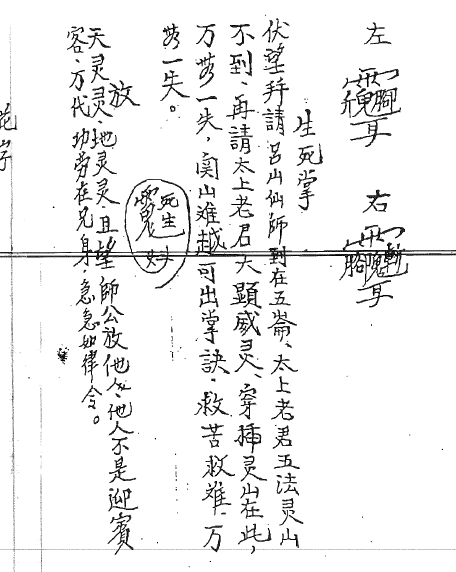 左 右
生死掌
伏望拜請吕山仙師到在五崙、太上老君五法灵山
不到、再請太上老君大顯威灵、穿插灵山在此，
万勞一失，関山难越可出掌訣、救苦救难、万
勞一失。
死生
放
天灵灵地灵灵且望師公放他人、他人不是迎賓
客、万代功劳在兄身、急急如律令。